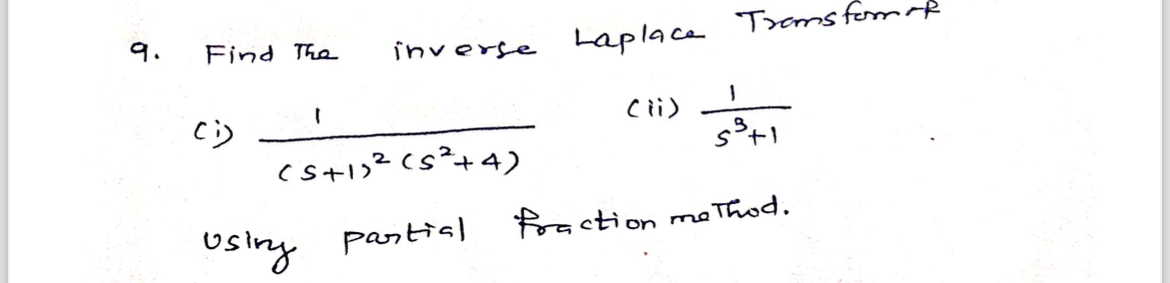 9. Find The inverse Laplace Transform of
(i) 1 / (s+1)² (s²+4) (ii) 1 / s³+1
Using partial fraction method.